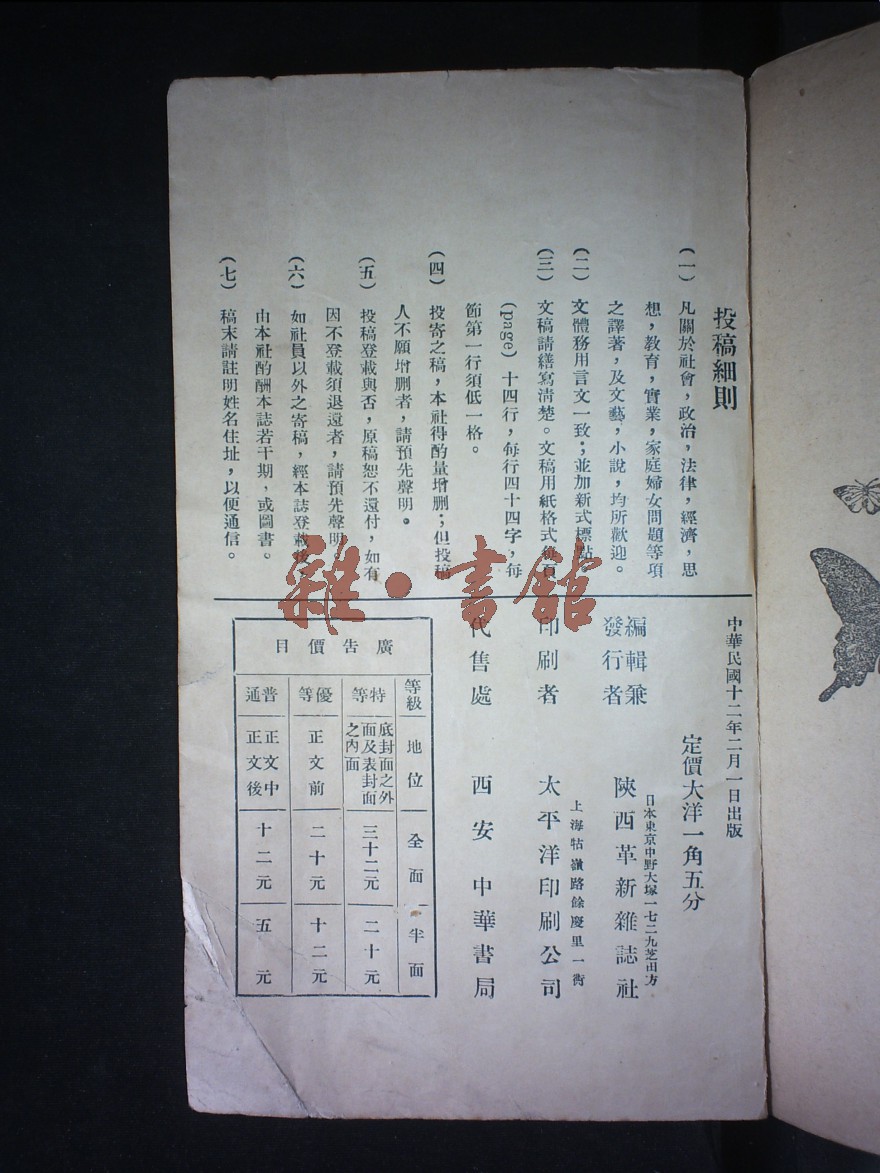 投稿細則
(一) 凡關於社會，政治，法律，經濟，思
想，教育，實業，家庭婦女問題等項
之譯著，及文藝，小說，均所歡迎。
(二) 文體務用言文一致；並加新式標點。
(三) 文稿請繕寫淸楚。文稿用紙格式從頁
(page) 十四行，每行四十四字，每
節第一行須低一格。
(四) 投寄之稿，本社得酌量增删；但投稿
人不願增删者，請預先聲明。
(五) 投稿登載與否，原稿恕不還付，如有
因不登載須退還者，請預先聲明。
(六) 如社員以外之寄稿，經本誌登載後，
由本社酌酬本誌若干期，或圖書。
(七) 稿末請註明姓名住址，以便通信。
中華民國十二年二月一日出版
定價大洋一角五分
編輯兼
發行者
日本東京中野大塚一七二九芝田方
陝西革新雜誌社
印刷者
上海牯嶺路餘慶里一衖
太平洋印刷公司
代售處 西安 中華書局
廣告價目
等級 地位 全面 半面
特等 底封面之外面及表封面之內面 三十二元 二十元
優等 正文前 二十元 十二元
普通 正文中 正文後 十二元 五元
雜·書館